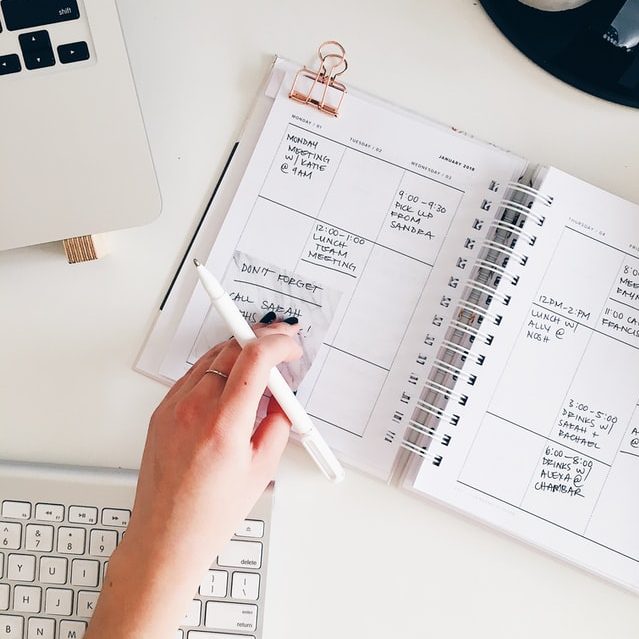 shift
JANUARY 2018
MONDAY / 01
TUESDAY / 02
WEDNESDAY / 03
MONDAY
MEETING
W/ KATIE
@ 9AM
9:00-9:30
PICK UP
FROM
SANDRA
12:00-1:00
LUNCH
TEAM
MEETING
DON'T FORGET
CALL SARAH
THURSDAY / 04
12PM-2PM
LUNCH W/
ALLY @
NOSH
3:00-5:00
DRINKS W/
SARAH +
RACHAEL
6:00-8:00
DRINKS W/
ALEXA @
CHAMBAR
8:0
MEET
11:00 CA
FRANCIS
delete
enter
return
shift
6
7
8
9
Y
U
I
O
H
J
K
B
N
M